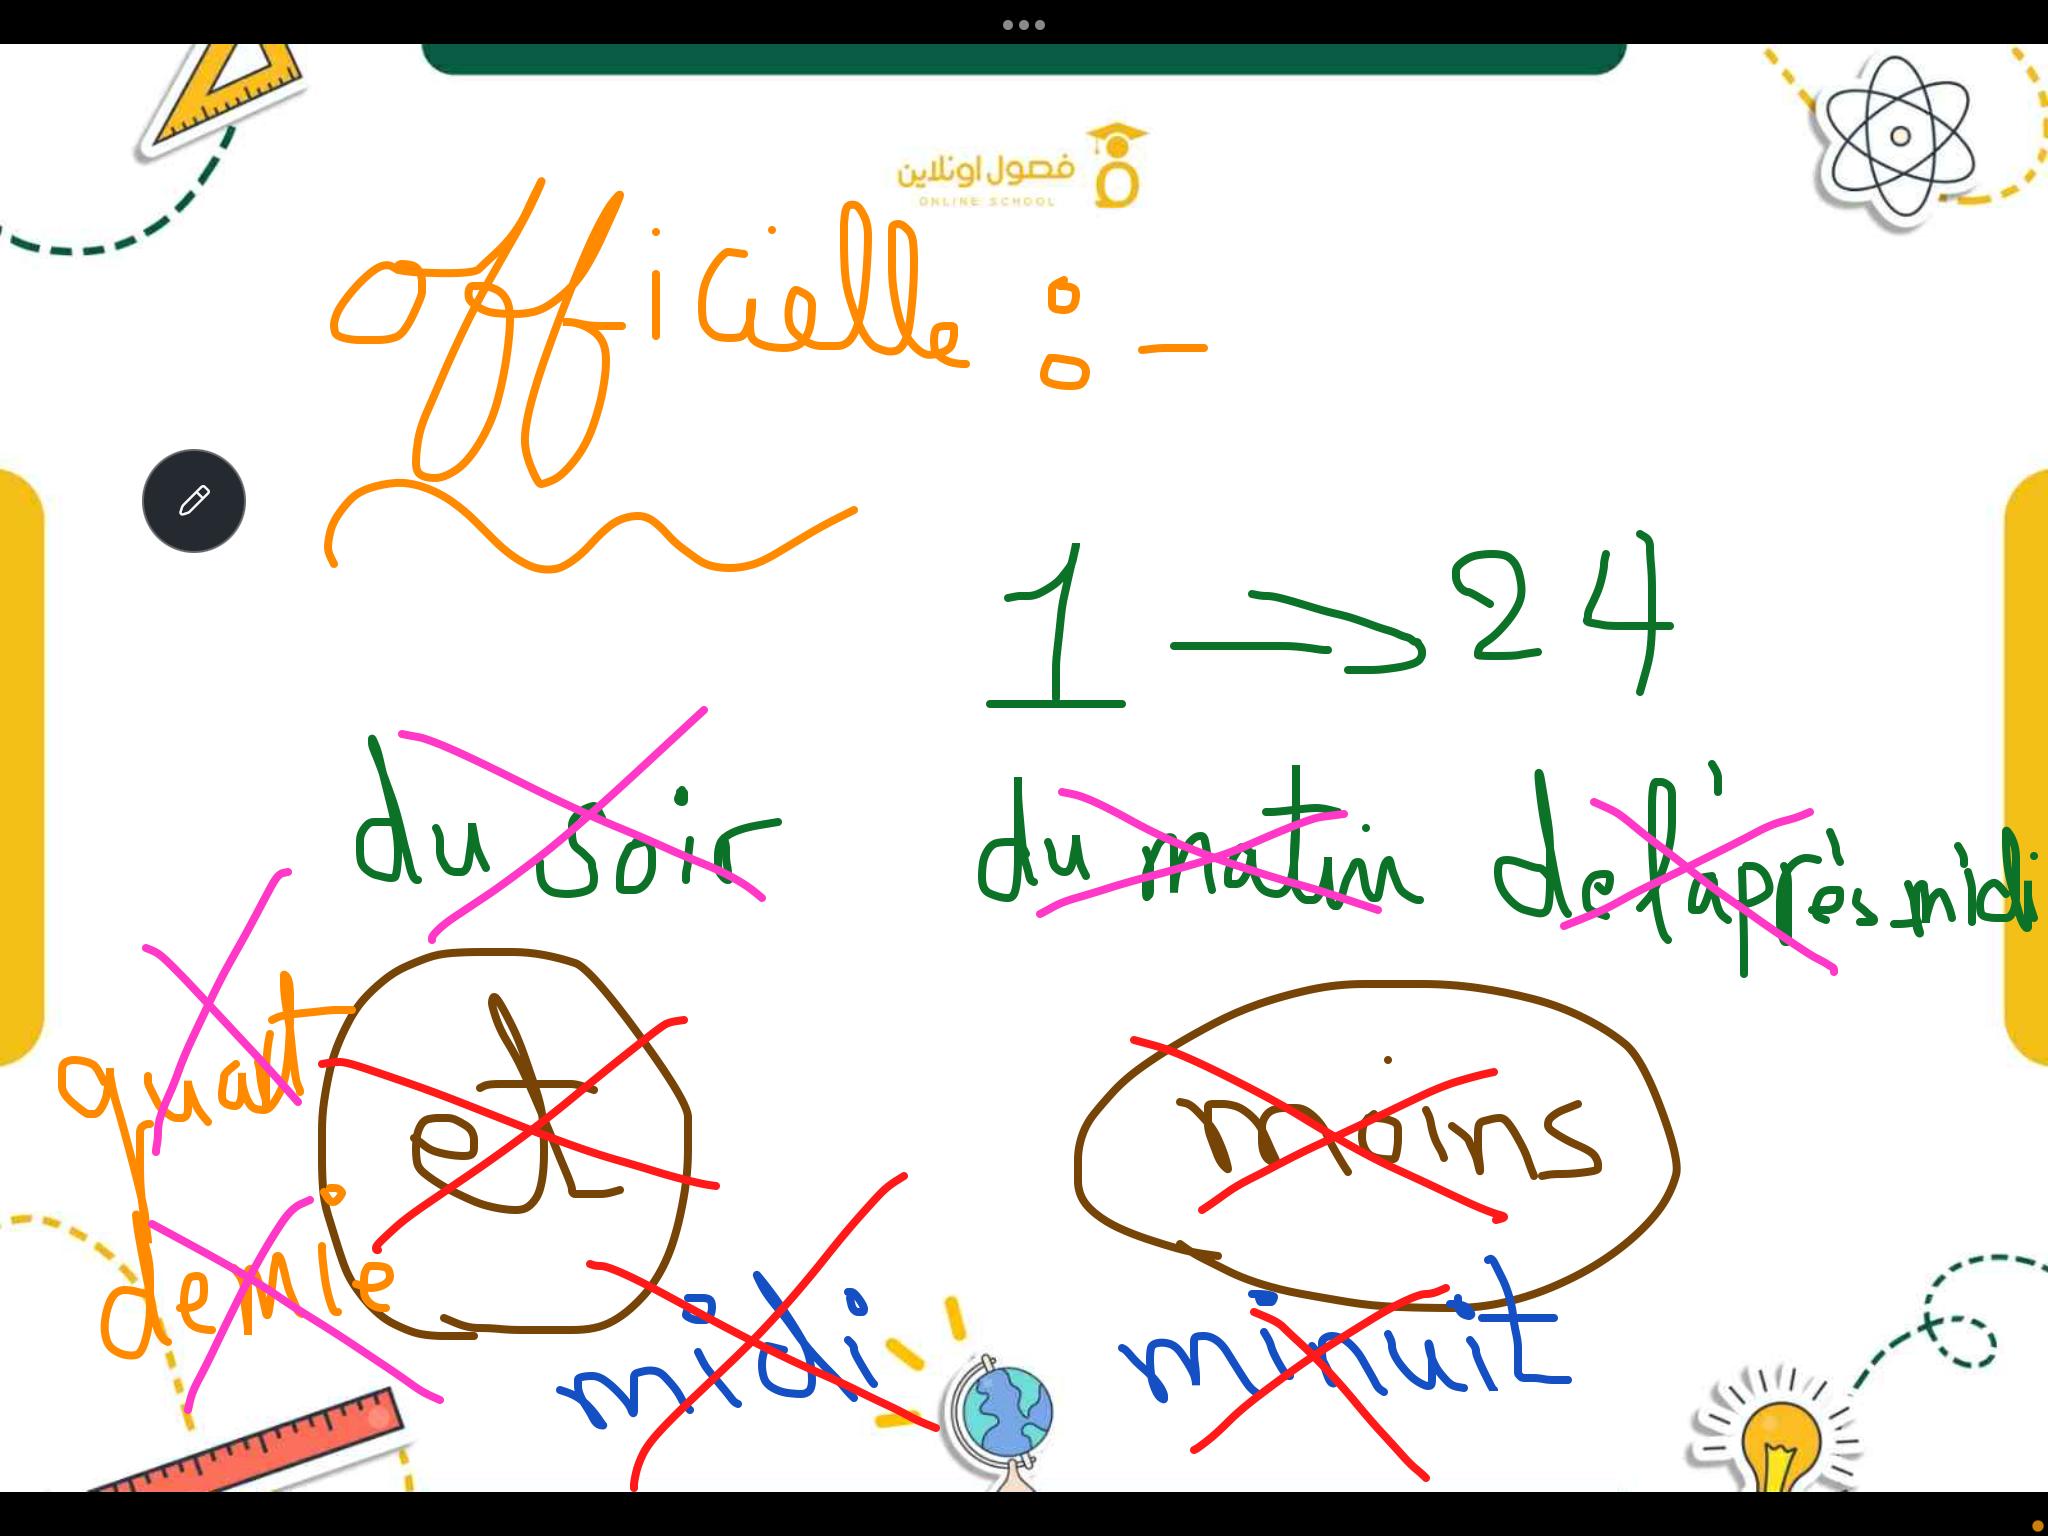 فصول اونلاين
ONLINE SCHOOL
officielle :-
1 → 24
du soir du matin de l'après midi
quart et moins
demie midi minuit